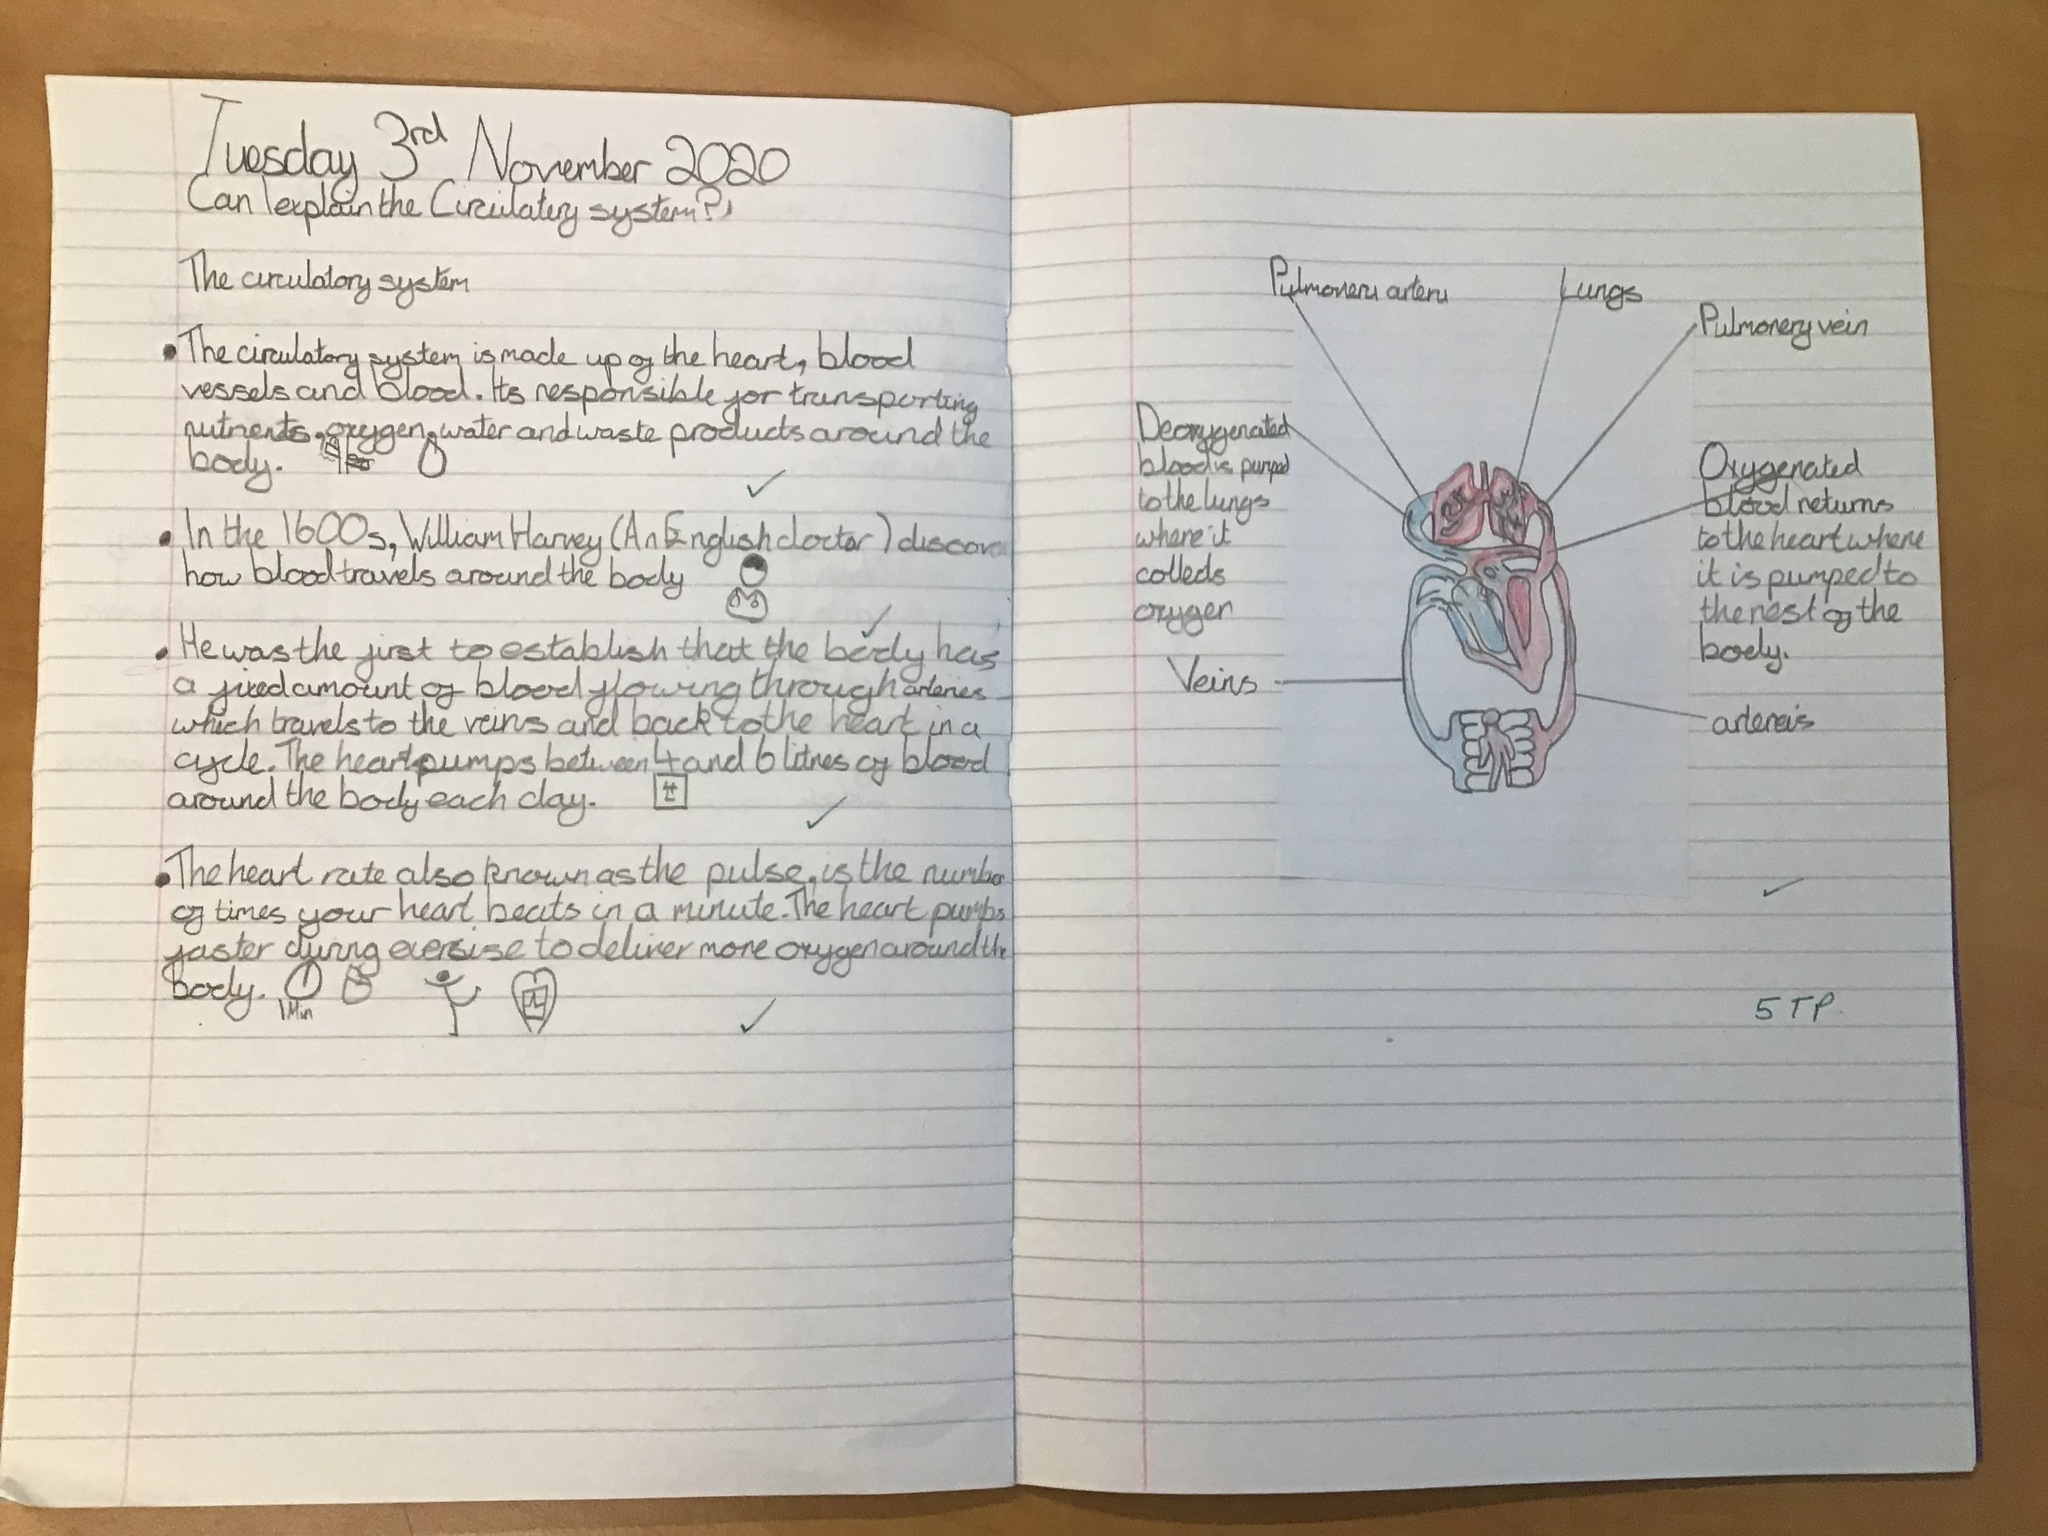 Tuesday 3rd November 2020
Can I explain the Circulatory system?
The circulatory system
• The circulatory system is made up of the heart, blood
vessels and blood. Its responsible for transporting
nutrients, oxygen, water and waste products around the
body.
• In the 1600s, William Harvey (An English doctor) discove
how blood travels around the body
• He was the first to establish that the body has
a fixed amount of blood flowing through arteries
which travels to the veins and back to the heart in a
cycle. The heart pumps between 4 and 6 litres of blood
around the body each day.
• The heart rate also known as the pulse, is the number
of times your heart beats in a minute. The heart pumps
faster during exersise to deliver more oxygen around the
body.
1 Min
Pulmonery artery
Lungs
Pulmonery vein
Deoxygenated
blood is pumped
to the lungs
where it
collects
oxygen
Oxygenated
blood returns
to the heart where
it is pumped to
the rest of the
body.
Veins
artereis
5 TP.